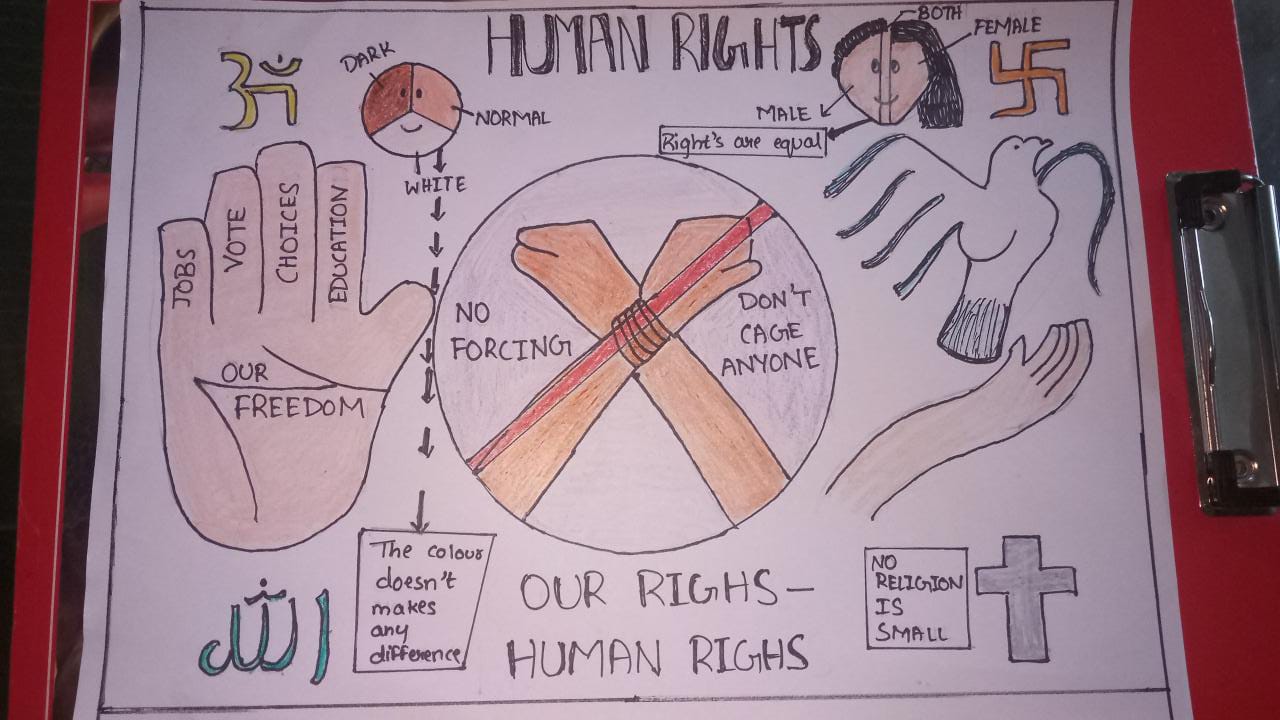 HUMAN RIGHTS
BOTH
FEMALE
MALE
Right's are equal
DARK
NORMAL
WHITE
ॐ
JOBS
VOTE
CHOICES
EDUCATION
OUR
FREEDOM
NO
FORCING
DON'T
CAGE
ANYONE
The colour
doesn't
makes
any
difference
OUR RIGHS-
HUMAN RIGHS
NO
RELIGION
IS
SMALL
الله